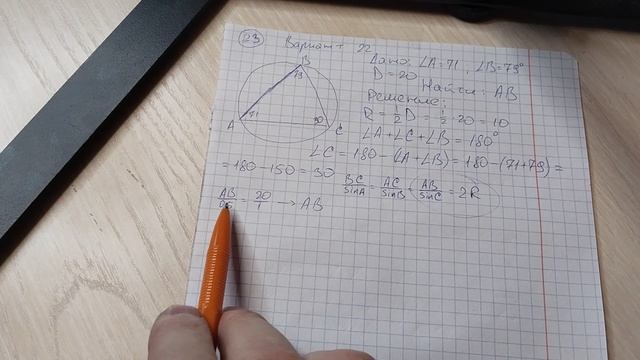 23 Вариант 22
Дано: ∠A=71, ∠B=79°
D=20
Найти: AB
Решение:
R = 1/2 D = 1/2 · 20 = 10
∠A+∠C+∠B=180°
∠C = 180-(∠A+∠B)=180-(71+79)=
=180-150=30
BC/sinA = AC/sinB = AB/sinC = 2R
AB/0,5 = 20/1 → AB
B
79
A
71
30
C